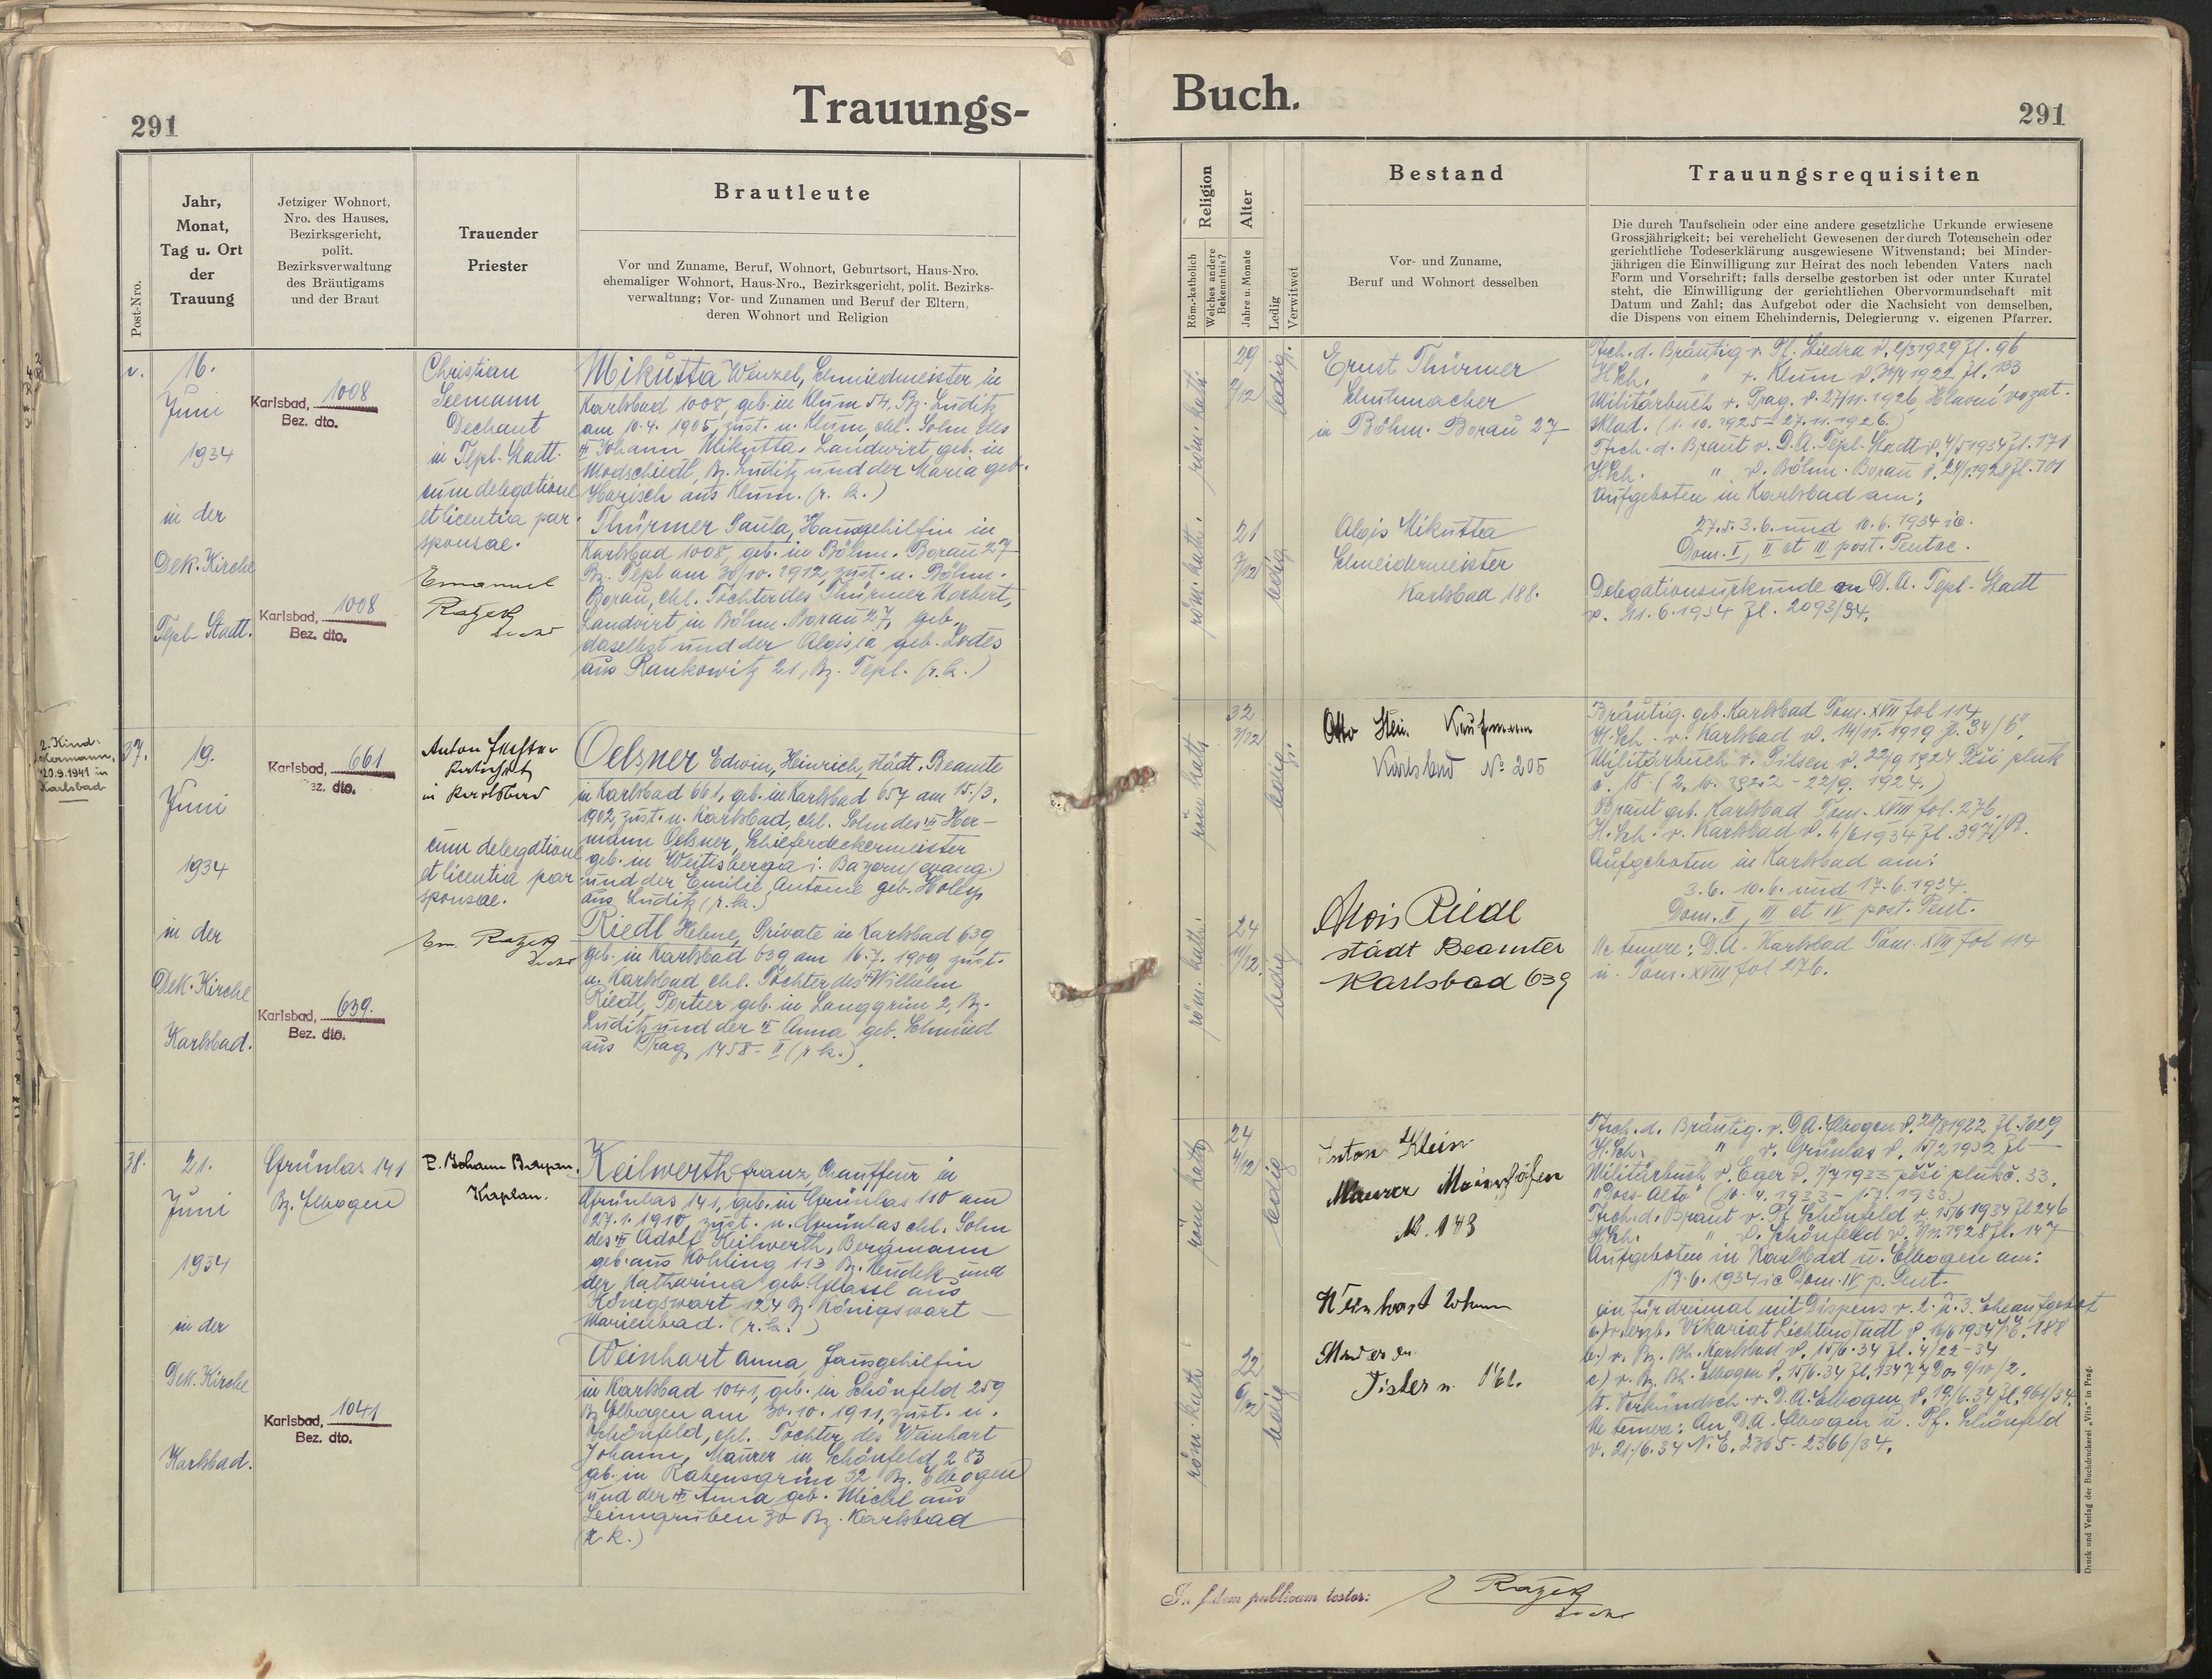 291
Trauungs-
Buch.
291
Post-Nro.
Jahr,
Monat,
Tag u. Ort
der
Trauung
Jetziger Wohnort,
Nro. des Hauses,
Bezirksgericht,
polit.
Bezirksverwaltung
des Bräutigams
und der Braut
Trauender
Priester
Brautleute
Vor und Zuname, Beruf, Wohnort, Geburtsort, Haus-Nro.
ehemaliger Wohnort, Haus-Nro., Bezirksgericht, polit. Bezirks-
verwaltung; Vor- und Zunamen und Beruf der Eltern,
deren Wohnort und Religion
Religion
Röm.-katholisch
Welches andere
Bekenntnis?
Alter
Jahre u. Monate
Ledig
Verwitwet
Bestand
Vor- und Zuname,
Beruf und Wohnort desselben
Trauungsrequisiten
Die durch Taufschein oder eine andere gesetzliche Urkunde erwiesene
Grossjährigkeit; bei verehelicht Gewesenen der durch Totenschein oder
gerichtliche Todeserklärung ausgewiesene Witwenstand; bei Minder-
jährigen die Einwilligung zur Heirat des noch lebenden Vaters nach
Form und Vorschrift; falls derselbe gestorben ist oder unter Kuratel
steht, die Einwilligung der gerichtlichen Obervormundschaft mit
Datum und Zahl; das Aufgebot oder die Nachsicht von demselben,
die Dispens von einem Ehehindernis, Delegierung v. eigenen Pfarrer.
v.
16.
Juni
1934
in der
Dek. Kirche
Tepl-Stadt.
Karlsbad, 1008
Bez. dto.
Karlsbad, 1008
Bez. dto.
Christian
Seemann
Dechant
in Tepl-Stadt
cum delegatione
et licentia par.
sponsae.
Emanuel
Mikutta Wenzel, Schmiedmeister in
Karlsbad 1008, geb. in Klum 54, Bz. Luditz
am 10.4.1905, zust. n. Klum, ehl. Sohn des
Johann Mikutta, Landwirt, geb. in
Modschiedl, Bz. Luditz und der Maria geb.
Harisch aus Klum. (r. k.)
Thürmer Paula, Hausgehilfin in
Karlsbad 1008, geb. in Böhm. Borau 27
Bz. Tepl am 30/10. 1912, zust. n. Böhm.
Borau, ehl. Tochter des Thürmer Norbert,
Landwirt in Böhm. Borau 27, geb.
daselbst und der Aloisia geb. Lodes
aus Rankowitz 21, Bz. Tepl. (r. k.)
röm. kath.
29
2/12
ledig.
röm. kath.
21
7/12
ledig
Ernst Thürmer
Schuhmacher
in Böhm. Borau 27
Alois Mikutta
Schneidermeister
Karlsbad 188.
Tfsch. d. Bräutig v. Pf. Zl. 96
H. Sch. " v. Klum Zl. 133
Militärbuch v. Prag. v. 27/11. 1926
(1. 10. 1925 - 27. 11. 1926.)
Tfsch. d. Braut v. D. A. Tepl-Stadt v. 4/5 1934 Zl. 171
Aufgeboten in Karlsbad am:
27. 5. 3. 6. und 10. 6. 1934 ie.
Dom. I, II et III post. Pentec.
Delegationsurkunde D. A. Tepl-Stadt
v. 11. 6. 1934 Zl. 2093/34.
2. Kind:
Hermann,
*20.9.1941 in
Karlsbad
37.
19.
Juni
1934
in der
Dek. Kirche
Karlsbad.
Karlsbad, 661
Bez. dto.
Karlsbad, 639.
Bez. dto.
Anton
in Karlsbad
cum delegatione
et licentia par.
sponsae.
Em.
Oelsner Edwin, Heinrich, städt. Beamte
in Karlsbad 661, geb. in Karlsbad 657 am 15./3.
1902, zust. n. Karlsbad, ehl. Sohn des Her-
mann Oelsner, Schieferdeckermeister
geb. in Weitisberga i. Bayern (evang.)
und der Emilie Antonie geb. Holey
aus Luditz (r. k.)
Riedl Helene, Private in Karlsbad 639
geb. in Karlsbad 639 am 16. 7. 1909, zust.
n. Karlsbad ehl. Tochter des Wilhelm
Riedl, Portier geb. in Langgrün 2, Bz.
Luditz und der Anna geb. Schmied
aus Prag 1458-II (r. k.)
röm. kath.
32
3/12
ledig.
röm. kath.
24
11/12
ledig
Otto Stein Kaufmann
Karlsbad No 205
Alois Riedl
städt Beamter
Karlsbad 639
Bräutig. geb. Karlsbad Tom. XVII fol 114
H. Sch. v. Karlsbad v. 14/11. 1919 Zl. 34/6.
Militärbuch v. Pilsen v. 22/9 1924 Pěší pluk
Braut geb. Karlsbad Tom. XVIII fol. 276.
H. Sch. v. Karlsbad v. 4/6 1934 Zl. 397/B.
Aufgeboten in Karlsbad am:
3. 6. 10. 6. und 17. 6. 1934.
Dom. II, III et IV post. Pent.
Ne temere: D. A. Karlsbad Tom. XVII fol 114
u. Tom. XVIII fol 276.
38.
21.
Juni
1934
in der
Dek. Kirche
Karlsbad.
Grünlas 141
Bz. Elbogen
Karlsbad, 1041
Bez. dto.
P. Johann
Kaplan.
Keilwerth Franz, Chauffeur in
Grünlas 141, geb. in Grünlas 110 am
27. 1. 1910, zust. n. Grünlas ehl. Sohn
des Adolf Keilwerth, Bergmann
geb. aus Kohling 113 Bz. Neudek und
der Katharina geb.
Königswart 124 Bz. Königswart -
Marienbad. (r. k.)
Weinhart Anna, Hausgehilfin
in Karlsbad 1041, geb. in Schönfeld 259
Bz Elbogen am 30. 10. 1911, zust. n.
Schönfeld, ehl. Tochter des Weinhart
Johann, Maurer in Schönfeld 283
geb. in Rabensgrün 32 Bz. Elbogen
und der Anna geb. Michl aus
Leimgruben 30 Bz. Karlsbad
(r. k.)
röm. kath.
24
4/12
ledig
röm. kath.
22
6/12
ledig
Anton Klein
Maurer
Weinhart Johann
Tfsch. d. Bräutig. v. D A. Elbogen Zl. 1029
H. Sch. " v. Grünlas v. 15/2 1932 Zl —
Militärbuch v. Eger v. 1/7 1933 pěší pluk č. 33.
Tfsch. d. Braut v. Pf. Schönfeld v. 15/6 1934 Zl 246
Aufgeboten in Karlsbad u. Elbogen am:
17. 6. 1934 ie Dom. IV p. Pent.
ein für dreimal mit Dispens v. 2. u. 3. Eheaufgebot
a.) v. erzb. Vikariat Lichtenstadt
b.) v. Bz. Bh. Karlsbad v. 15/6. 34 Zl. 4/22-34
c.) v. Bz. Bh. Elbogen v. 15/6. 34
Verkündsch. v. D. A. Elbogen v. 19/6. 34 Zl. 961/34.
Ne temere: An D. A. Elbogen u. Pf. Schönfeld
v. 21./6. 34 N. E. 2365-2366/34.
In fidem publicam testor:
Druck und Verlag der Buchdruckerei „Vita" in Prag.